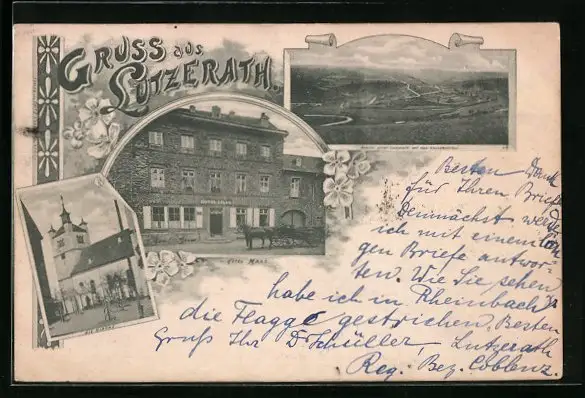 GRUSS aus
LUTZERATH.
HOTEL MAAS
Hotel MAAS
Die Kirche
Besten Dank
für Ihren Brief.
Demnächst werde
ich mit einem lan
gen Briefe antwor-
ten. Wie Sie sehen
habe ich in Rheinbach
die Flagge gestrichen. Besten
Gruß Ihr Dr Schüller, Lutzerath
Reg. Bez. Coblenz.